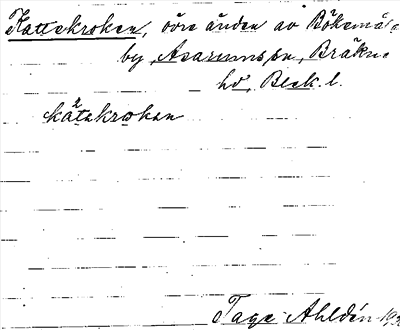 Kattekroken, övre änden av Bökemåla
by, Asarums sn, Bräkn.
hd, Blek. l.
kat²ekroken
Tage Ahldén 193